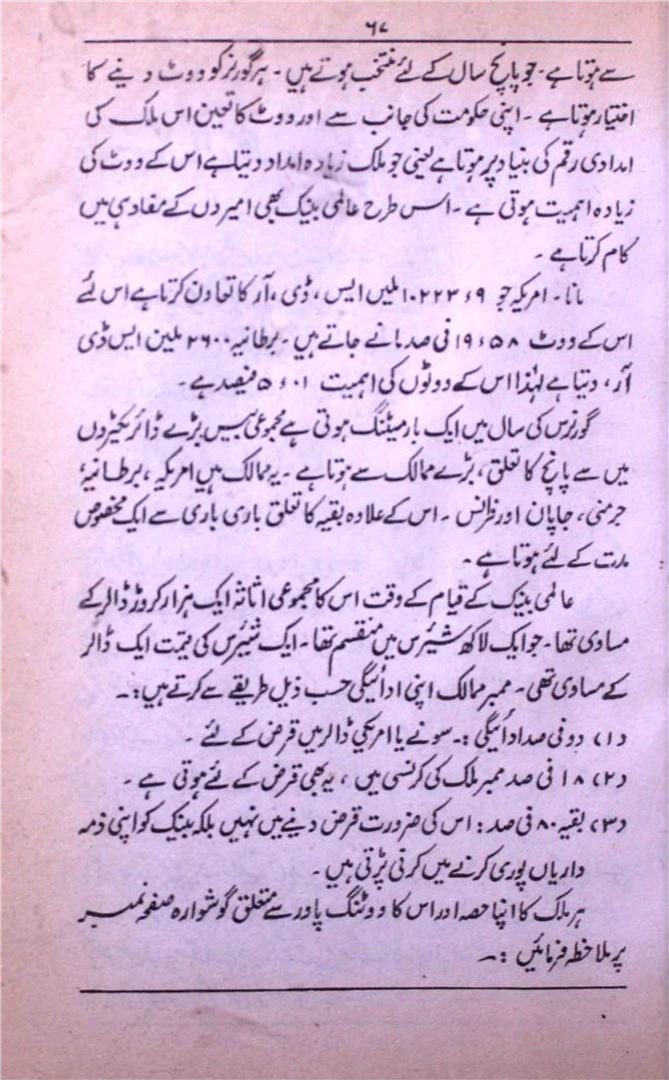 ۶۷
سے ہوتا ہے۔ جو پانچ سال کے لئے منتخب ہوتے ہیں۔ ہر گورنر کو ووٹ دینے کا
اختیار ہوتا ہے۔ اپنی حکومت کی جانب سے اور ووٹ کا تعین اس ملک کی
امدادی رقم کی بنیاد پر ہوتا ہے یعنی جو ملک زیادہ امداد دیتا ہے اس کے ووٹ کی
زیادہ اہمیت ہوتی ہے۔ اس طرح عالمی بینک بھی امیروں کے مفاد ہی میں
کام کرتا ہے۔
مانا۔ امریکہ جو ۱۰۲۲۳۶۹ ملین ایس، ڈی، آر کا تعاون کرتا ہے اس لئے
اس کے ووٹ ۱۹۶۵۸ فی صد مانے جاتے ہیں۔ برطانیہ ۲۶۰۰ ملین ایس ڈی
آر، دیتا ہے لہٰذا اس کے ووٹوں کی اہمیت ۵۶۰۱ فیصد ہے۔
گورنرس کی سال میں ایک بار میٹنگ ہوتی ہے مجموعی بیس بڑے ڈائریکٹروں
میں سے پانچ کا تعلق، بڑے ممالک سے ہوتا ہے۔ یہ ممالک ہیں امریکہ، برطانیہ،
جرمنی، جاپان اور فرانس۔ اس کے علاوہ بقیہ کا تعلق باری باری سے ایک مخصوص
مدت کے لئے ہوتا ہے۔
عالمی بینک کے قیام کے وقت اس کا مجموعی اثاثہ ایک ہزار کروڑ ڈالر کے
مساوی تھا۔ جو ایک لاکھ شیئرس میں منقسم تھا۔ ایک شیئرس کی قیمت ایک ڈالر
کے مساوی تھی۔ ممبر ممالک اپنی ادائیگی حسب ذیل طریقے سے کرتے ہیں:۔
(۱) دو فی صد ادائیگی:۔ سونے یا امریکی ڈالر میں قرض کے لئے۔
(۲) ۱۸ فی صد ممبر ملک کی کرنسی میں، یہ بھی قرض کے لئے ہوتی ہے۔
(۳) بقیہ ۸۰ فی صد: اس کی ضرورت قرض دینے میں نہیں بلکہ بینک کو اپنی ذمہ
داریاں پوری کرنے میں کرنی پڑتی ہیں۔
ہر ملک کا اپنا حصہ اور اس کا ووٹنگ پاور سے متعلق گوشوارہ صفحہ نمبر
پر ملاحظہ فرمائیں:۔